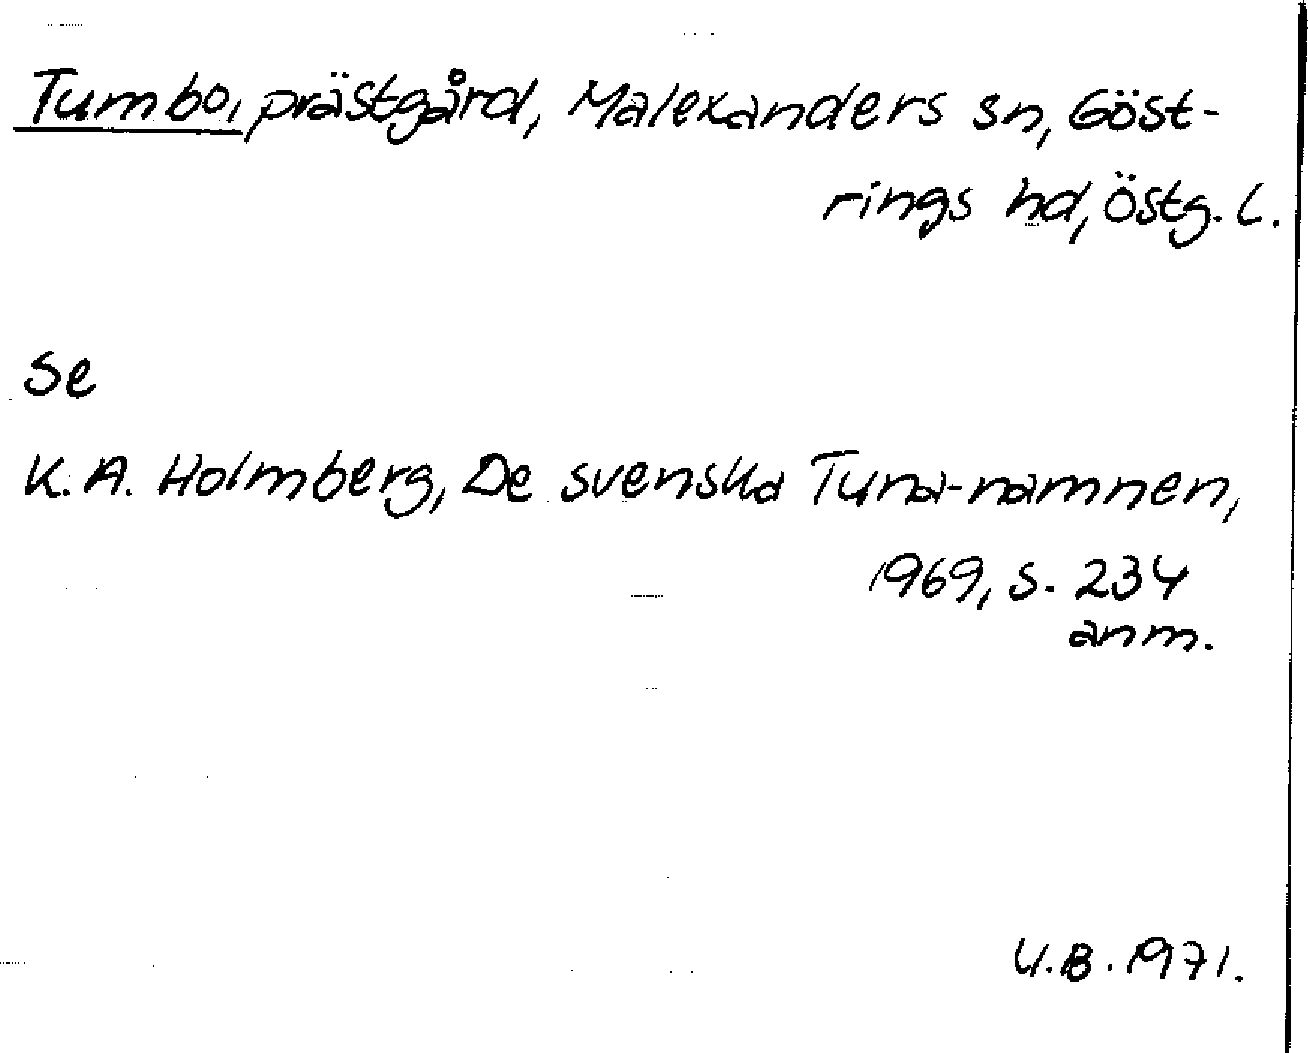 Tumbo, prästgård, Malexanders sn, Göst-
rings hd, Östg. l.
Se
K. A. Holmberg, De svenska Tuna-namnen,
1969, s. 234
anm.
U.B. 1971.